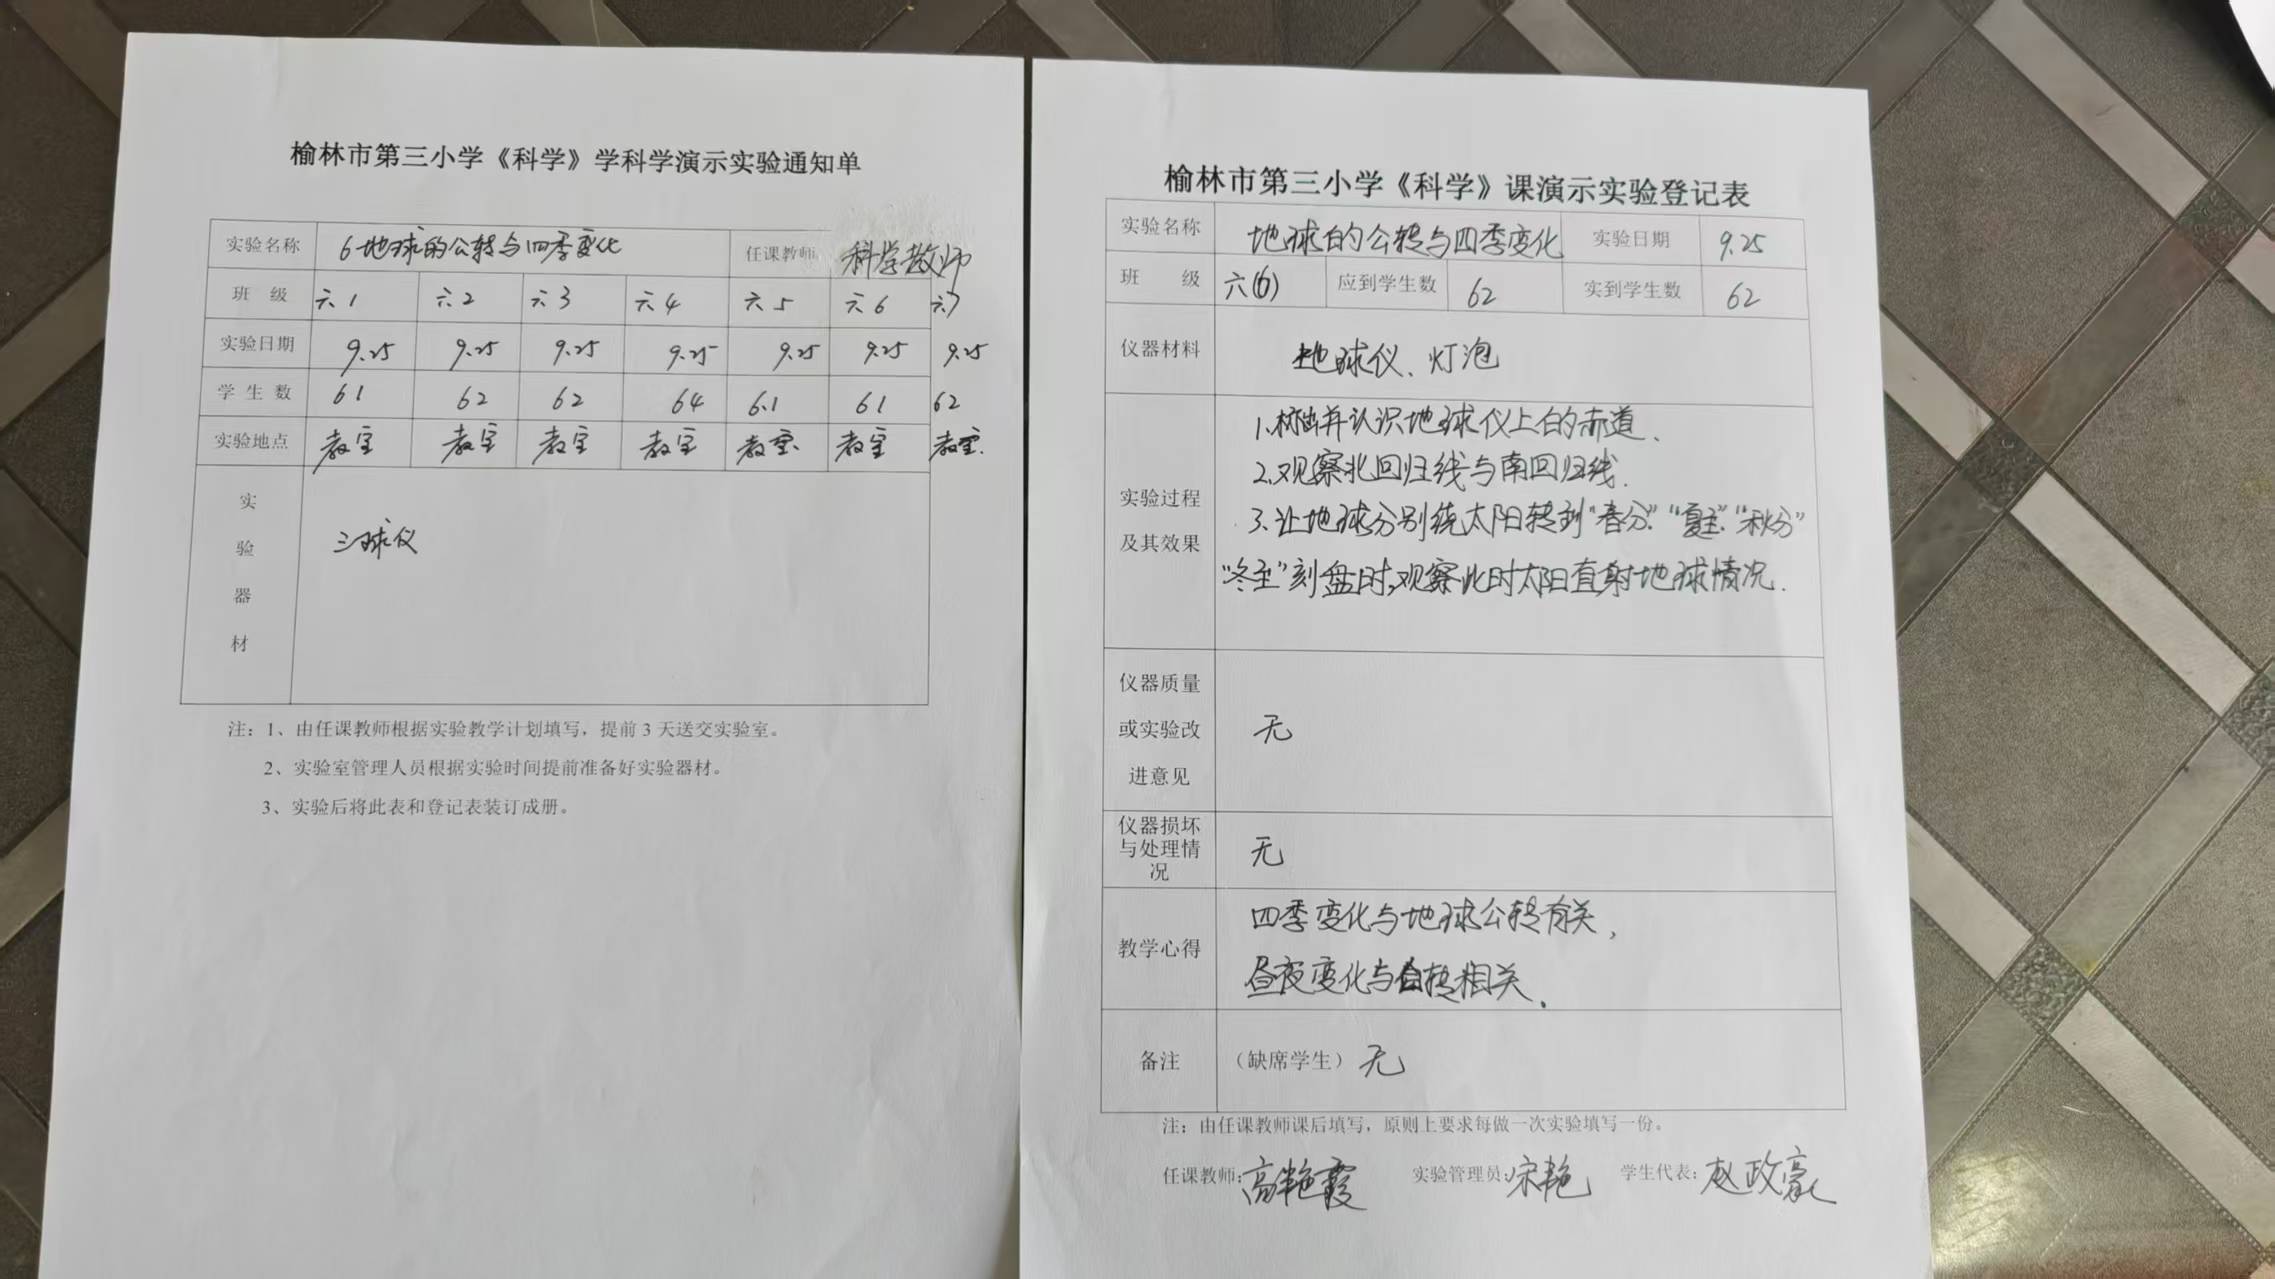 榆林市第三小学《科学》学科学演示实验通知单
实验名称 6地球的公转与四季变化 任课教师 科学教师
班级 六1 六2 六3 六4 六5 六6 六7
实验日期 9.25 9.25 9.25 9.25 9.25 9.25 9.25
学生数 61 62 62 64 6.1 61 62
实验地点 教室 教室 教室 教室 教室 教室 教室.
实
验
器
材
三球仪
注：1、由任课教师根据实验教学计划填写，提前3天送交实验室。
2、实验室管理人员根据实验时间提前准备好实验器材。
3、实验后将此表和登记表装订成册。
榆林市第三小学《科学》课演示实验登记表
实验名称 地球的公转与四季变化 实验日期 9.25
班级 六(6) 应到学生数 62 实到学生数 62
仪器材料 地球仪、灯泡
实验过程
及其效果
1.并认识地球仪上的赤道、
2.观察北回归线与南回归线.
3.让地球分别绕太阳转到“春分”“夏至”“秋分”
“冬至”刻盘时,观察此时太阳直射地球情况.
仪器质量
或实验改
进意见
无
仪器损坏
与处理情
况
无
教学心得
四季变化与地球公转有关，
昼夜变化与自转相关.
备注 （缺席学生）无
注：由任课教师课后填写，原则上要求每做一次实验填写一份。
任课教师：高艳霞 实验管理员：宋艳 学生代表：赵政豪